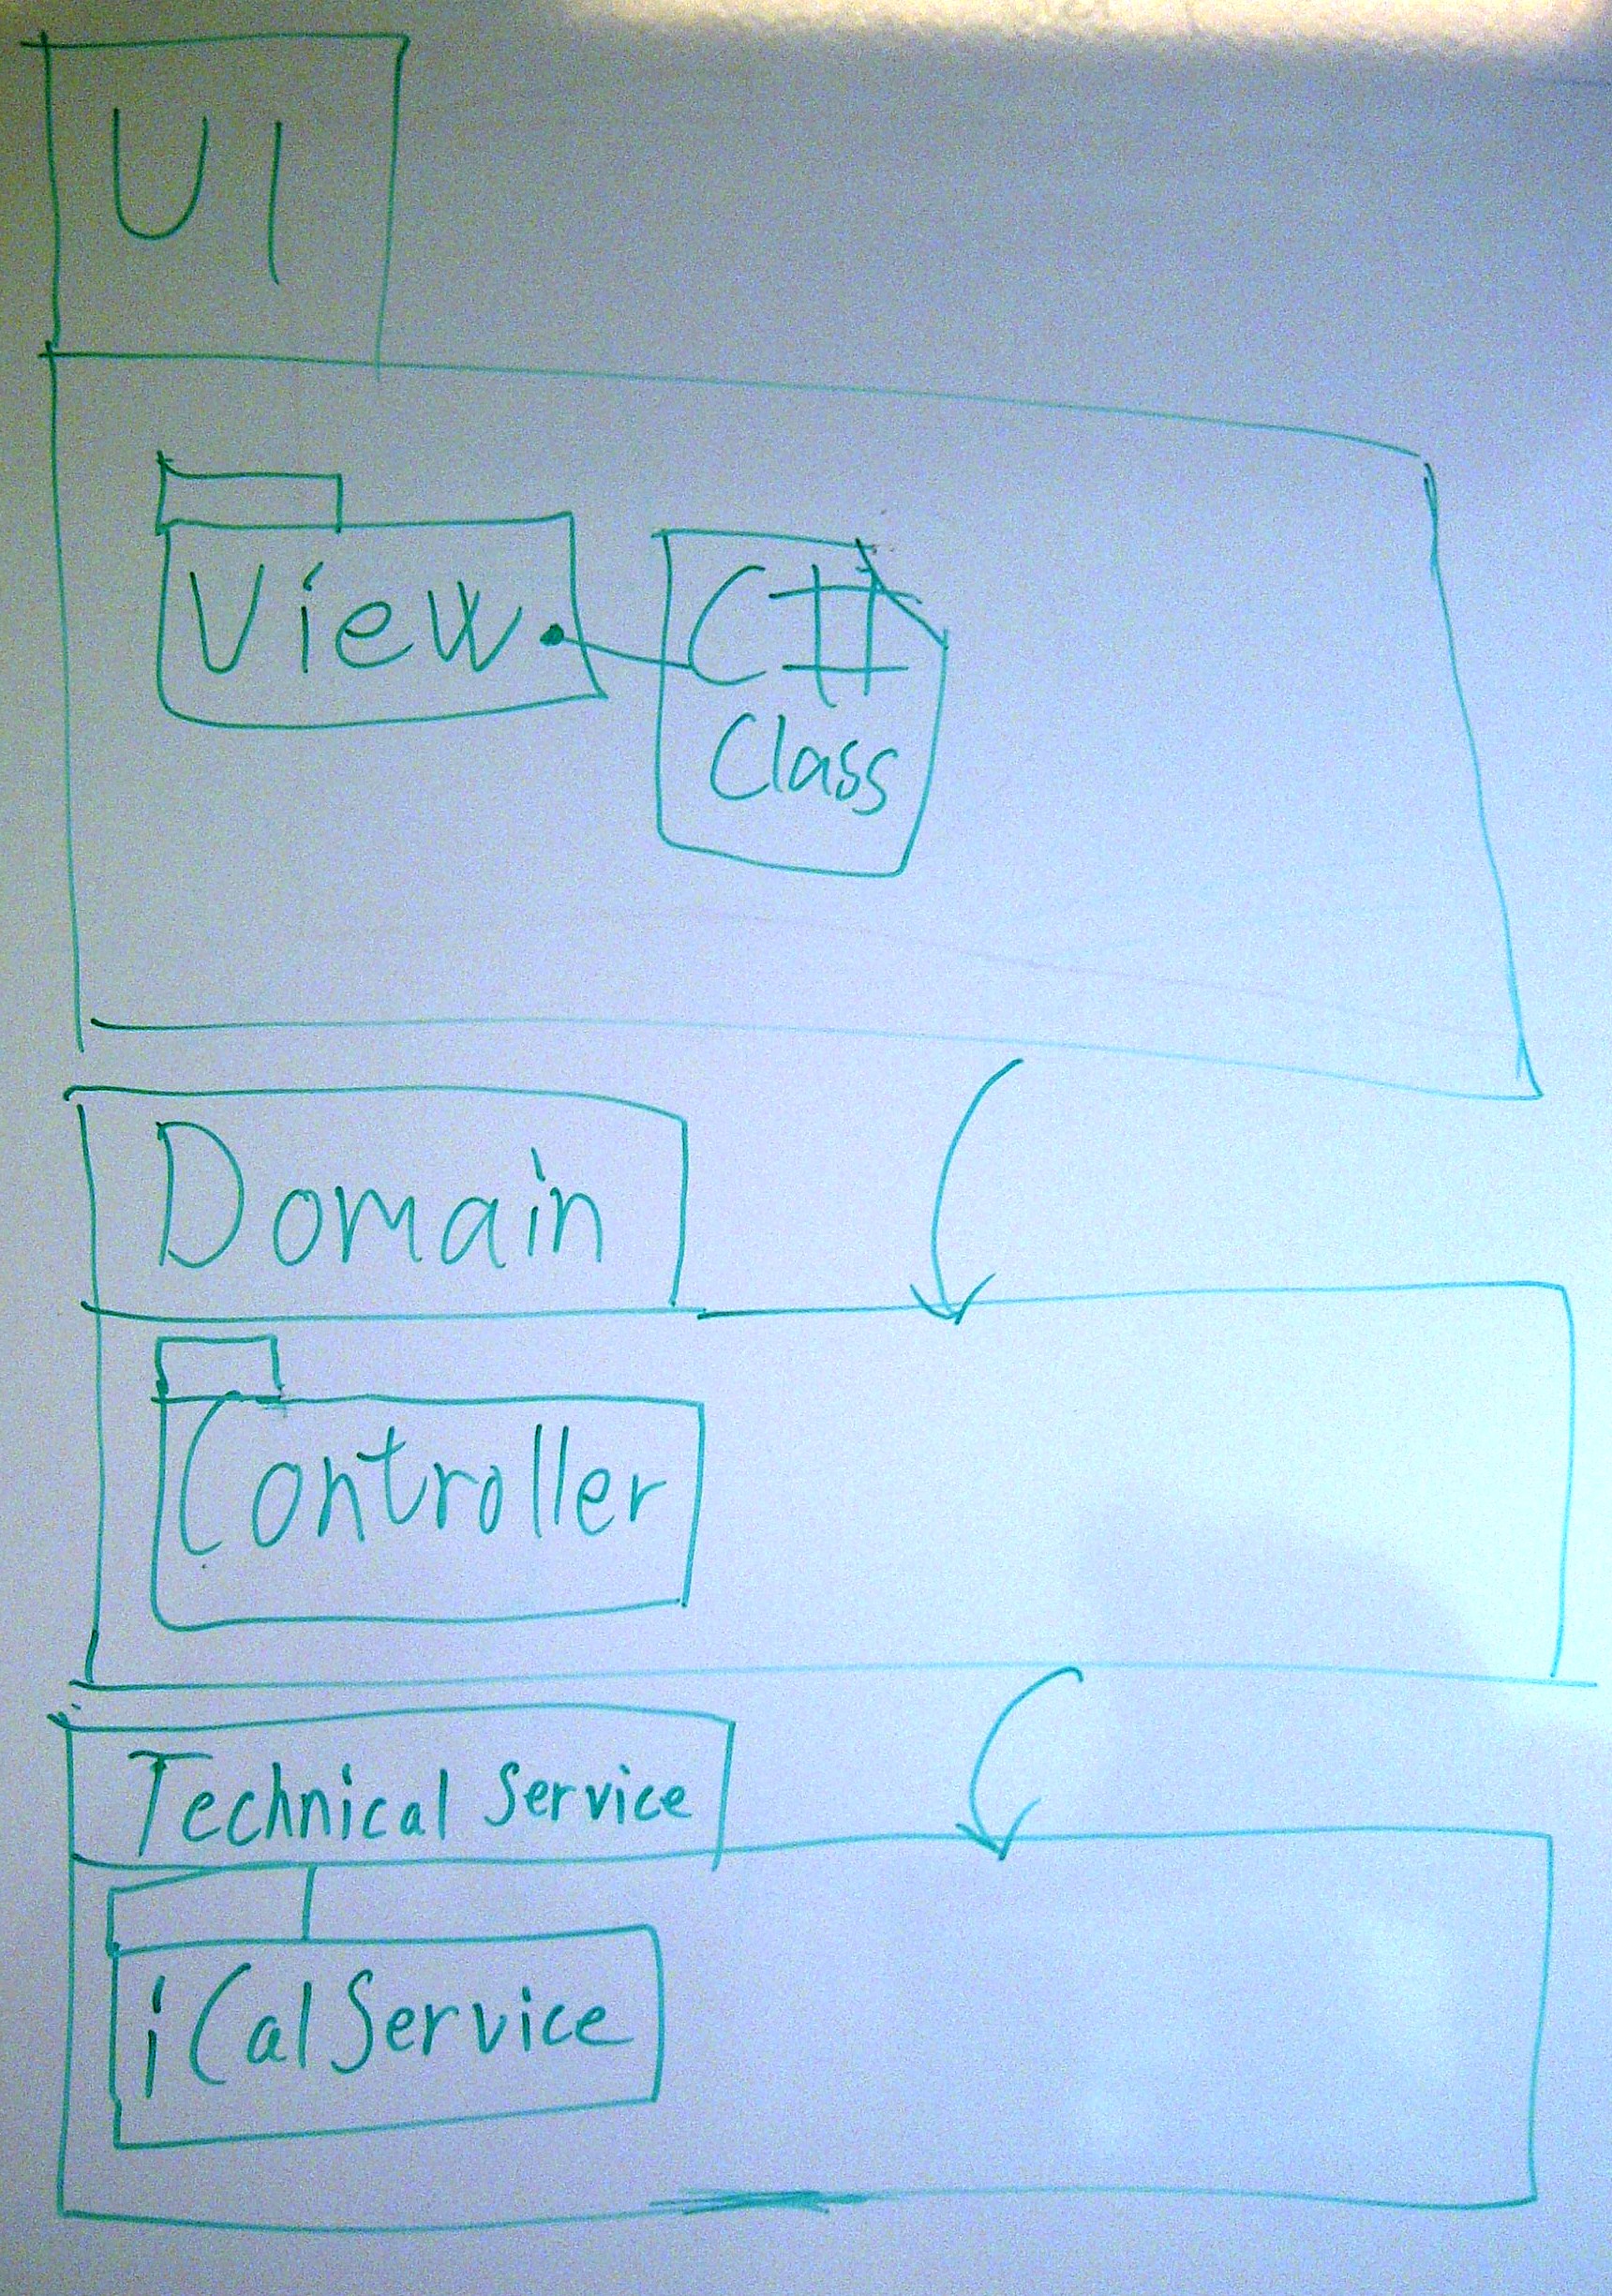 UI
View
C#
Class
Domain
Controller
Technical Service
iCalService